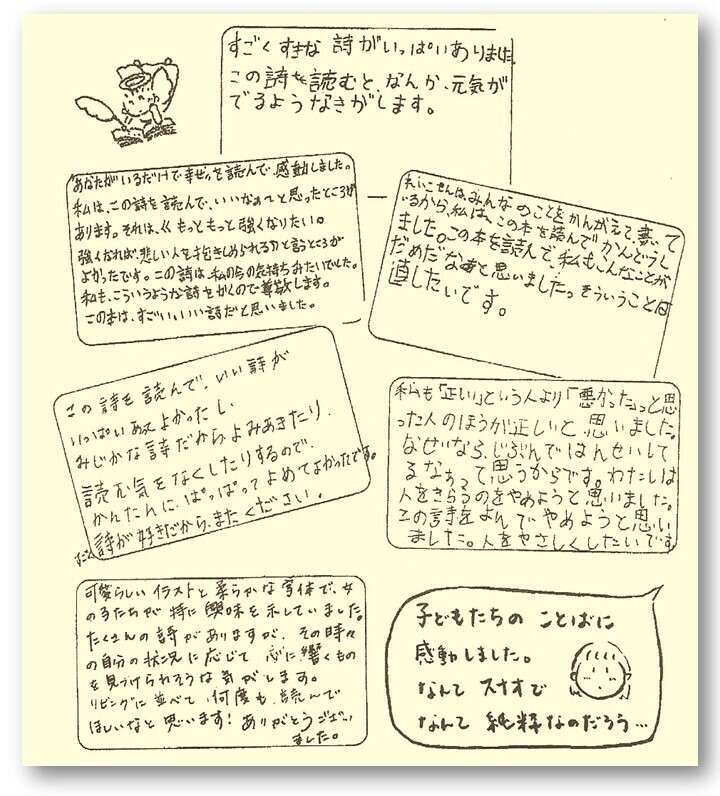 すごくすきな詩がいっぱいありました
この詩を読むと、なんか、元気が
でるようなきがします。
あなたがいるだけで幸せっを読んで、感動しました。
私は、この詩を読んで、いいなぁてと思ったところが
あります。それは、≪もっともっと強くなりたい。
強くなれば、悲しい人を抱きしめられる≫と言うところが
よかったです。この詩は、私の心の気持ちみたいでした。
私も、こういうような詩をかくので尊敬します。
この本は、すごい、いい詩だと思いました。
れいこせんは、みんなのことをかんがえて書いて
いるから、私は、この本を読んでかんどうし
ました。この本を読んで、私もこんなことが
だめだなぁと思いました。そういうことは
直したいです。
この詩を読んで、いい詩が
いっぱいあってよかったし、
みじかな詩だから、よみあきたり、
読む気をなくしたりするので、
かんたんに、ぱっぱってよめてよかったです。
詩が好きだから、またください。
私も「正しい」という人より「悪かった」っと思
った人のほうが正しいと思いました。
なぜなら、じぶんではんせいして
るなぁって思うからです。わたしは
人をきらうのをやめようと思いました。
この詩をよんでやめようと思い
ました。人をやさしくしたいです
可愛らしいイラストと柔らかな字体で、女
の子たちが特に興味を示していました。
たくさんの詩がありますが、その時々
の自分の状況に応じて心に響くもの
を見つけられそうな気がします。
リビングに並べて、何度も読んで
ほしいなと思います！ありがとうござい
ました。
子どもたちの ことばに
感動しました。
なんて スナオで
なんて 純粋なのだろう…